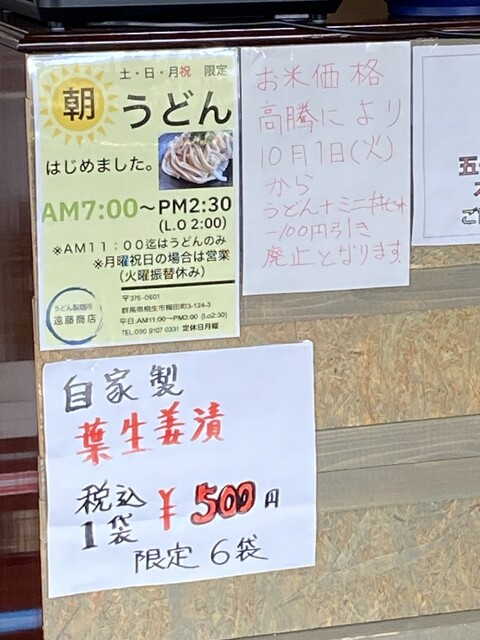 土・日・月祝 限定
朝うどん
はじめました。
AM7:00~PM2:30
(L.O 2:00)
※AM11:00迄はうどんのみ
※月曜祝日の場合は営業
(火曜振替休み)
うどん製麺所
遠藤商店
〒376-0601
群馬県桐生市梅田町3-124-3
平日.AM11:00~PM3:00 (Lo2:30)
TEL.090 9107 0331 定休日月曜
お米価格
高騰により
10月1日(火)
から
うどん+ミニ丼セット
-100円引き
廃止となります
自家製
葉生姜漬
税込
1袋 ¥500円
限定 6袋
五
ご